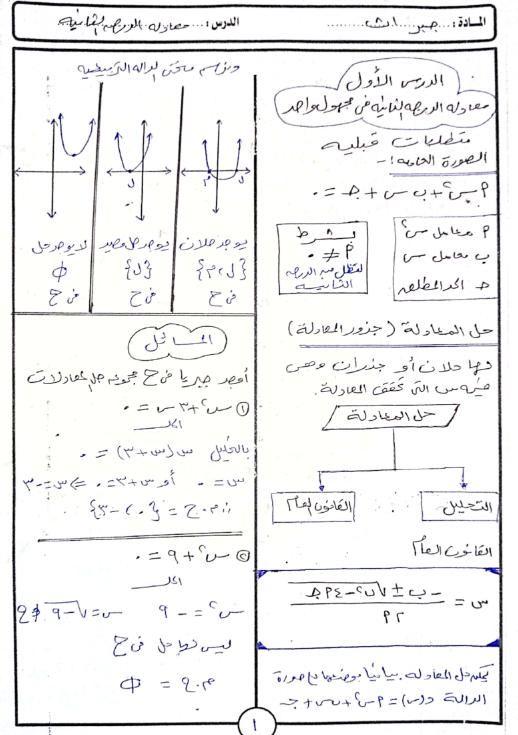 المادة: ... جبر ... ث ...
الدرس: ... معادلة الدرجة الثانية
الدرس الأول
معادلة الدرجة الثانية فى مجهول واحد
متطلبات قبلية
الصورة العامة:-
٢
م س٢ + ب س + جـ = ٠
م معامل س٢
ب معامل س
جـ الحد المطلق
بشرط
م ≠ ٠
لتظل من الدرجة
الثانية
حل المعادلة (جذور المعادلة)
لها حلان أو جذران وهى
قيم س التى تحقق المعادلة.
حل المعادلة
التحليل
القانون العام
القانون العام
س = (- ب ± √(ب٢ - ٤ م جـ)) / ٢ م
يمكن حل المعادلة بيانيا بوضعها فى صورة
الدالة د(س) = م س٢ + ب س + جـ
ونرسم منحنى الدالة التربيعية
م ل
ل
يوجد حلان
{ل ، م}
فى ح
يوجد حل وحيد
{ل}
فى ح
لا يوجد حل
Φ
فى ح
المسائل
أوجد جبريا فى ح مجموعة حل المعادلات
① س٢ + ٣ س = ٠
الحل
بالتحليل س (س + ٣) = ٠
س = ٠ أو س + ٣ = ٠ ⇒ س = -٣
∴ م.ح = {٠ ، -٣}
② س٢ + ٩ = ٠
الحل
س٢ = - ٩ س = √-٩ ∉ ح
ليس لها حل فى ح
م.ح = Φ
١